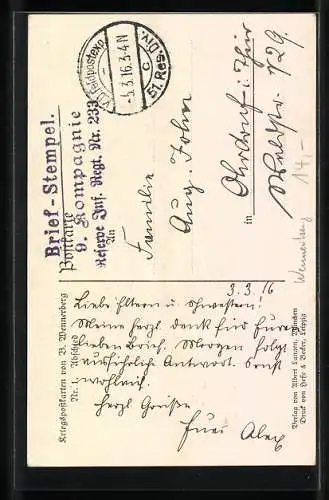 K.D. Feldpostexp.
- 4.3.16. 3-4 N
c
51. Res. Div.
Brief-Stempel.
9. Kompagnie
Reserve Inf. Regt. Nr. 233
Postkarte
An
Familie
Aug. John
in
Ohrdruf i. Thür
Waldstr. 729.
14,-
Wennerberg
Kriegspostkarten von B. Wennerberg
Nr. 1. Abschied
3.3.16
Liebe Eltern u. Schwestern!
Meine herzl. Dank für Euren
lieben Brief. Morgen folgt
ausführliche Antwort. Sonst
wohlauf.
Herzl. Grüße
Euer Alex
Verlag von Albert Langen, München
Druck von Hesse & Becker, Leipzig